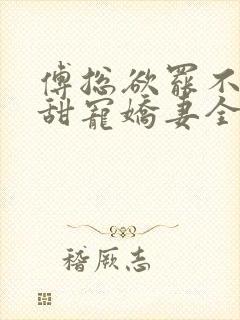 傅总欲罢不
甜宠娇妻全
稽厥志